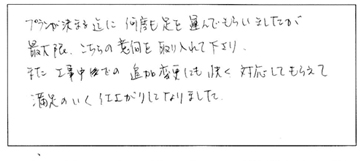 プランが決まる迄に何度も足を運んでもらいましたが
最大限、こちらの意向を取り入れて下さり、
また工事中後での追加変更にも快く対応してもらえて
満足のいく仕上がりになりました